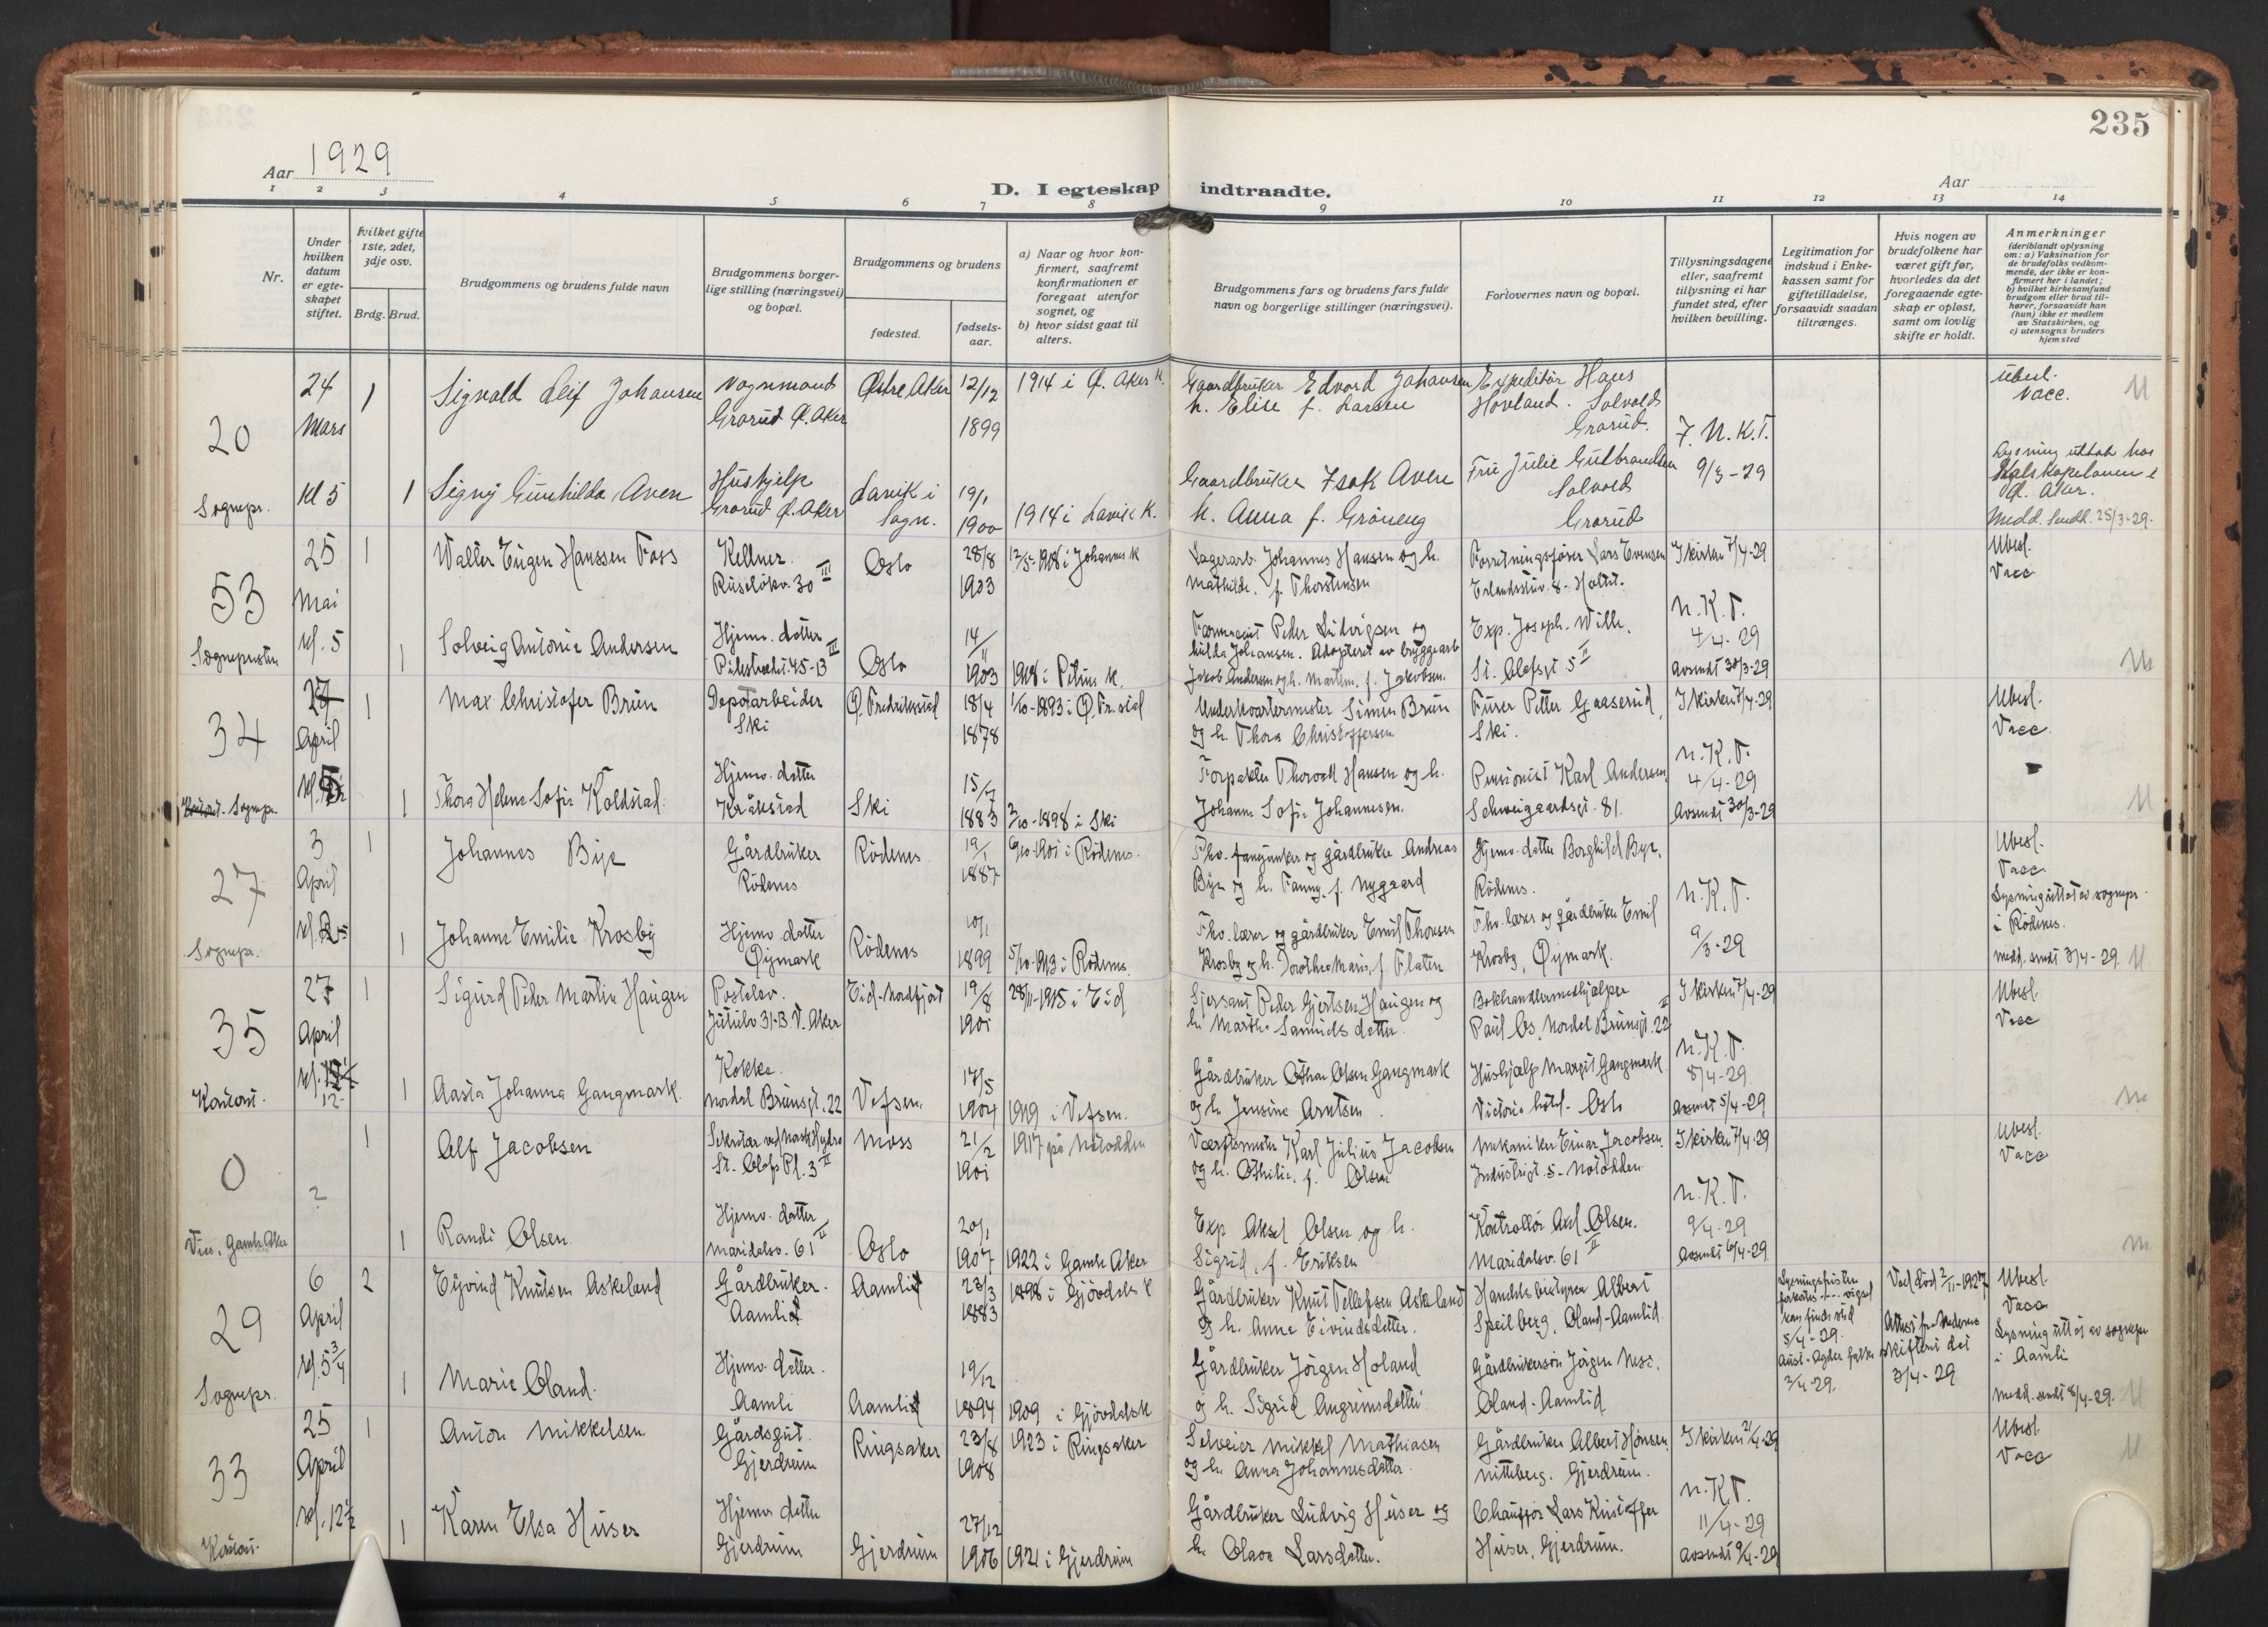 235
Aar 1929
Aar
D. I egteskap indtraadte.
1 2 3 4 5 6 7 8 9 10 11 12 13 14
Nr.
Under hvilken datum er egteskapet stiftet.
Hvilket gifte 1ste, 2det, 3dje osv.
Brdg. Brud.
Brudgommens og brudens fulde navn
Brudgommens borgerlige stilling (næringsvei) og bopæl.
Brudgommens og brudens
fødested.
fødselsaar.
a) Naar og hvor konfirmert, saafremt konfirmationen er foregaat utenfor sognet, og
b) hvor sidst gaat til alters.
Brudgommens fars og brudens fars fulde navn og borgerlige stillinger (næringsvei).
Forlovernes navn og bopæl.
Tillysningsdagene eller, saafremt tillysning ei har fundet sted, efter hvilken bevilling.
Legitimation for indskud i Enkekassen samt for giftetilladelse, forsaavidt saadan tiltrænges.
Hvis nogen av brudefolkene har været gift før, hvorledes da det foregaaende egteskap er opløst, samt om lovlig skifte er holdt.
Anmerkninger
(deriblandt oplysning om: a) Vaksination for de brudefolks vedkommende, der ikke er konfirmert her i landet; b) hvilket kirkesamfund brudgom eller brud tilhører, forsaavidt han (hun) ikke er medlem av Statskirken, og c) utensogns bruders hjemsted
20 24 Mars kl 5 Sognepr.
1 Sigvald Leif Johansen Vognmand Grorud Ø. Aker Østre Aker 12/12 1899 1914 i Ø. Aker k.
Gaardbruker Edvard Johansen h. Elise f. Larsen
Expeditør Hans Hovland. Solvold Grorud.
7. N.K.T. 9/3-29
Ubesl. Vacc.
1 Signy Gunhilda Aven Hushjelp Grorud Ø. Aker Lavik i Sogn. 19/1 1900 1914 i Lavik k.
Gaardbruker Isak Aven h. Anna f. Grøneng
Fru Julie Gulbrandsen Solvold Grorud
Lysning uttat hos Ø. Aker.
Medd. sendt. 25/3-29.
53 25 Mai kl. 5 Sognepresten
1 Walter Eugen Hanssen Foss Kellner. Ruseløkv. 30 III Oslo 28/8 1903 12/5-1918 i Johannes k
Lagerarb. Johannes Hansen og h. Mathilde. f. Thorstensen
Forretningsfører Lars Evensen Erlandsstuv. 8 - Holtet.
I kirken 7/4-29 N.K.T. 4/4-29 Avsendt 30/3-29
Ubesl. Vacc
1 Solveig Antonie Andersen Hjemv. datter Pilestredet. 45-B III Oslo 14/11 1903 1918 i Petrus k.
Peder Ludvigsen og Hulda Johansen. Adoptert av bryggearb Jakob Andersen og h. Martine. f. Jakobsen.
Exp. Joseph. Wilh. St. Olafsgt 5 II
34 27 April kl. 5 Sognepr.
1 Max Christofer Brun Depotarbeider Ski Ø. Fredrikstad 18/4 1878 1/10-1893 i Ø. Fr.stad
Underkvartermester Simen Brun og h. Thora Christoffersen
Furer Petter Gaaserud, Ski.
I kirken 7/4-29 N.K.T. 4/4-29 Avsendt 30/3-29
Ubesl. Vacc.
1 Thora Helene Sofie Koldstad Hjemv. datter Kråkstad Ski 15/7 1883 2/10-1898 i Ski
Forpakter Thorvald Hansen og h. Johanne Sofie Johannesen.
Pensionist Karl Andersen Schweigaardsgt. 81.
27 3 April Sognepr.
1 Johannes Bye Gårdbruker Rødenes Rødenes 19/1 1887 6/10-1901 i Rødenes.
Fhv. fanejunker og gårdbruker Andreas Bye og h. Fanny. f. Nygaard
Hjemv. datter Borghild Bye. Rødenes.
N.K.T. 9/3-29
Ubesl. Vacc.
Lysning uttat av sognepr. i Rødenes.
medd. sendt 3/4-29.
1 Johanne Emilie Krosby Hjemv. datter Øymark Rødenes 10/1 1899 5/10-1913 i Rødenes.
Fhv. lærer og gårdbruker Emil Thovsen Krosby og h. Dorothea Marie, f. Flaten
Fhv. lærer og gårdbruker Emil Krosby, Øymark.
35 27 April Kontoret. 12-
1 Sigurd Peder Martin Haugen Postelev. Jutulv 31-B V. Aker Eid-Nordfjord 19/8 1901 28/11-1915 i Eid
Sjersant Peder Gjertsen Haugen og h. Marthe Samuelsdatter.
Bokhandlermedhjælper Paul Os, Nordal Brunsgt. 22 II
I kirken 7/4-29 N.K.T. 8/4-29. Avsendt 5/4-29
Ubesl. Vacc
1 Aasta Johanna Gangmark. Kokke. Nordal Brunsgt. 22 Vefsen. 17/5 1904 1919 i Vefsen.
Gårdbruker Othar Olsen Gangmark og h. Jensine Arntsen.
Hushjælp Margit Gangmark Victoria hotel - Oslo
0 ? Gamle Aker
1 Alf Jacobsen Sekretær ved Norsk Hydro St. Olafs Pl. 3 II Moss 21/2 1901 1917 på Notodden
Værkmester Karl Julius Jacobsen og h. Othilie. f. Olsen
Mekaniker Einar Jacobsen. Industrigt. 5 - Notodden.
I kirken 7/4-29 N.K.T. 9/4-29 Avsendt 6/4-29
Ubesl. Vacc
1 Randi Olsen. Hjemv. datter Maridalsv. 61 II Oslo 20/1 1907 1922 i Gamle Aker
Exp Aksel Olsen og h. Sigrid, f. Eriksen
Kontrollør Axel Olsen. Maridalsv. 61 II
29 6 April kl. 5 3/4 Sognepr.
2 Eyvind Knutsen Askeland Gårdbruker. Aamli Aamli 23/3 1883 1898 i Gjövdals k
Gårdbruker Knut Tellefsen Askeland og h. Anne Eivindsdatter.
Handelsbestyrer Albert Speilberg, Oland-Aamlid.
Lysningsfristen forkortes ---- vigsel kan finde sted 5/4-29. Aust-Agder fylke 2/4-29.
Ved död 2/11-1927 Attest fra Nedenes skifteret dat 3/4-29
Ubesl. Vacc
Lysning uttat av sognepr i Aamli
medd. sendt 8/4-29.
1 Marie Oland. Hjemv. datter. Aamli Aamli 19/12 1894 1909 i Gjövdalsk
Gårdbruker Jörgen Holand og h. Sigrid Angrimsdatter.
Gårdbrukersøn Jörgen Ness. Oland-Aamlid
33 25 April kl. 12 1/2 Kontor.
1 Anton Mikkelsen. Gårdsgut. Gjerdrum Ringsaker 23/8 1908 1923 i Ringsaker
Selveier Mikkel Mathiasen og h. Anna Johannesdatter.
Gårdbruker Albert Hønsen, Nitteberg. Gjerdrum.
I kirken 21/4-29 N.K.T. 11/4-29 Avsendt 9/4-29
Ubesl. Vacc
1 Karen Elsa Huser Hjemv datter Gjerdrum Gjerdrum 27/12 1906 1921 i Gjerdrum
Gårdbruker Ludvig Huser og h. Olava Larsdatter.
Chauffør Lars Kristoffer Huser, Gjerdrum.